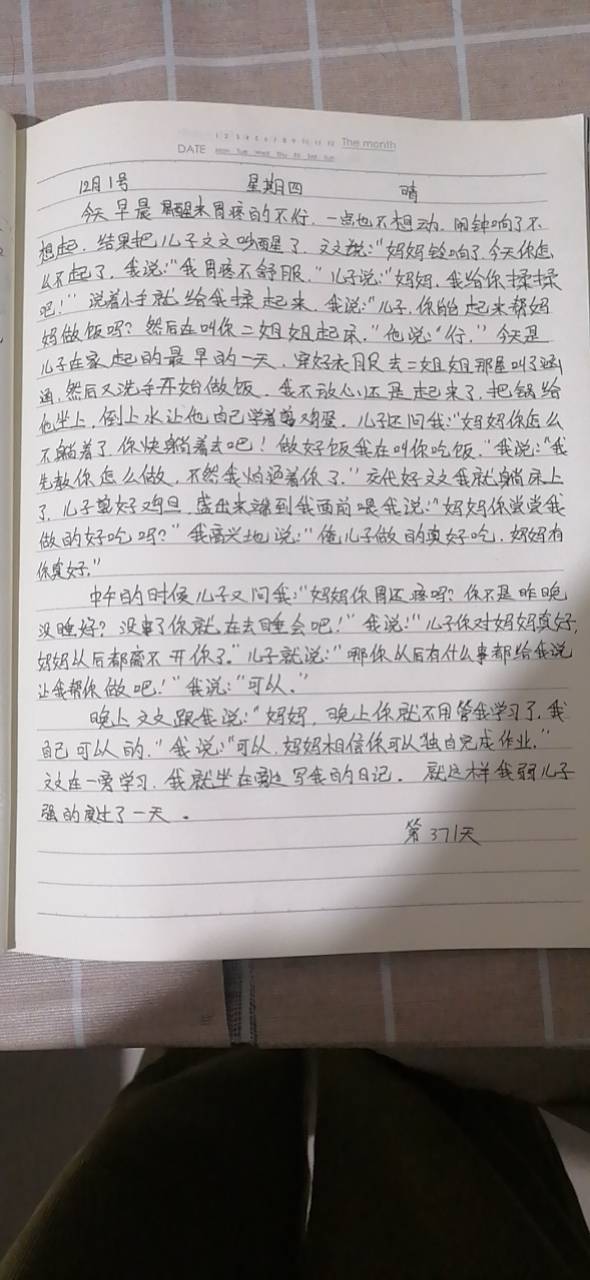 1 2 3 4 5 6 7 8 9 10 11 12 The month
DATE Mon Tue Wed Thu Fri Sat Sun
12月1号 星期四 晴
今天早晨醒来胃疼的不行，一点也不想动，闹钟响了不
想起，结果把儿子文文吵醒了，文文说：“妈妈铃响了，今天你怎
么不起了，我说：“我胃疼不舒服。”儿子说：“妈妈，我给你揉揉
吧！”说着小手就给我揉起来，我说：“儿子，你能起来帮妈
妈做饭吗？然后在叫你二姐姐起床。”他说：“行。”今天是
儿子在家起的最早的一天，穿好衣服去二姐姐那屋叫了涵
涵，然后又洗手开始做饭，我不放心还是起来了，把锅给
他坐上，倒上水让他自己学着煎鸡蛋，儿子还问我：“妈妈你怎么
不躺着了，你快躺着去吧！做好饭我在叫你吃饭。”我说：“我
先教你怎么做，不然我怕烫着你了。”交代好文文我就躺床上
了，儿子煎好鸡旦，盛出来端到我面前喂我说：“妈妈你尝尝我
做的好吃吗？”我高兴地说：“俺儿子做的真好吃，妈妈有
你真好。”
中午的时候儿子又问我：“妈妈你胃还疼吗？你不是昨晚
没睡好？没事了你就在去睡会吧！”我说：“儿子你对妈妈真好，
妈妈从后都离不开你了。”儿子就说：“哪你从后有什么事都给我说
让我帮你做吧！”我说：“可以。”
晚上文文跟我说：“妈妈，晚上你就不用管我学习了，我
自己可以的。”我说：“可以，妈妈相信你可以独自完成作业。”
文文在一旁学习，我就坐在旁边写我的日记。就这样我弱儿子
强的度过了一天。
第371天